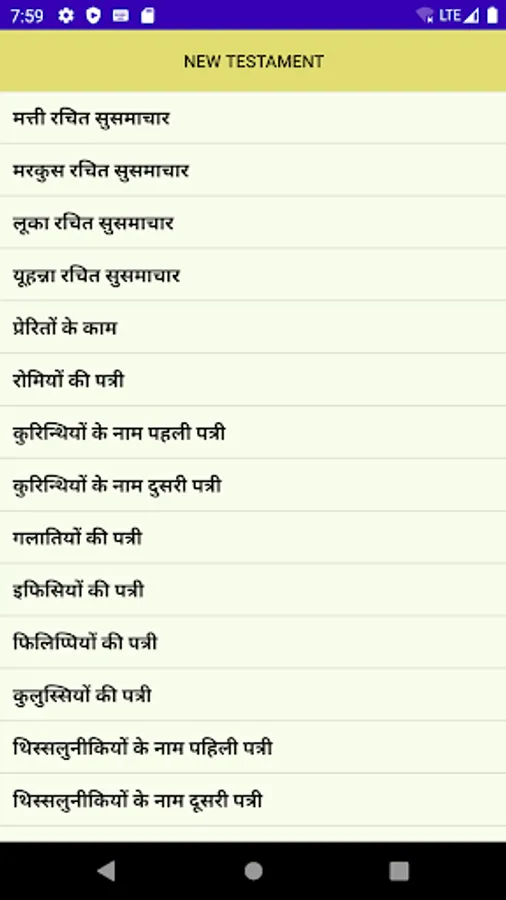 7:59 LTE
NEW TESTAMENT
मत्ती रचित सुसमाचार
मरकुस रचित सुसमाचार
लूका रचित सुसमाचार
यूहन्ना रचित सुसमाचार
प्रेरितों के काम
रोमियों की पत्री
कुरिन्थियों के नाम पहली पत्री
कुरिन्थियों के नाम दुसरी पत्री
गलातियों की पत्री
इफिसियों की पत्री
फिलिप्पियों की पत्री
कुलुस्सियों की पत्री
थिस्सलुनीकियों के नाम पहिली पत्री
थिस्सलुनीकियों के नाम दूसरी पत्री